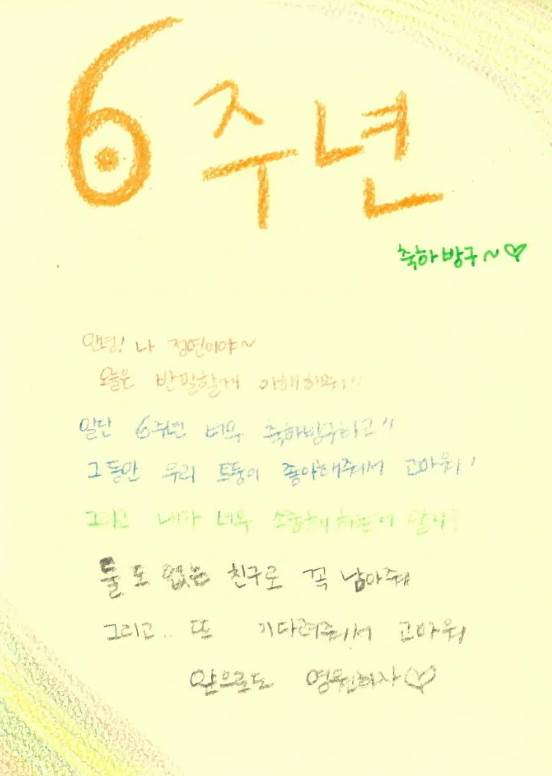 6주년
축하방구~♡
안녕! 나 정연이야~
오늘은 반말할게 이해해줘!!
일단 6주년 너무 축하방구하고!!
그동안 우리 트둥이 좋아해줘서 고마워!
그리고 내가 너무 소중해하는거 알지?
둘도 없는 친구로 꼭 남아줘
그리고.. 또 기다려줘서 고마워
앞으로도 영원하자♡